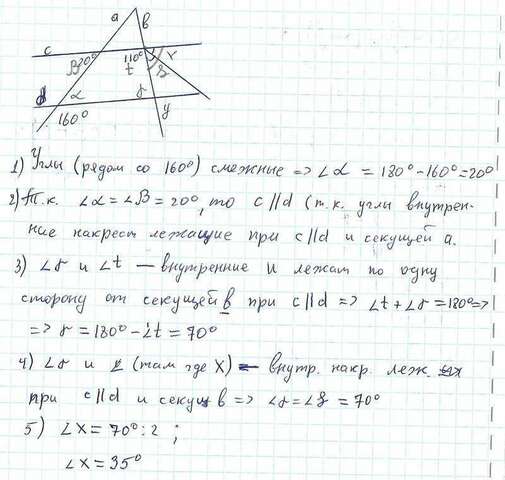 a b
c β 20° 110° t x
d α γ
160° y
1) Углы (рядом со 160°) смежные => ∠α = 180° - 160° = 20°
2) Т.к. ∠α = ∠β = 20°, то c||d (т.к. углы внутрен-
ние накрест лежащие при c||d и секущей a.
3) ∠γ и ∠t — внутренние и лежат по одну
сторону от секущей в при c||d => ∠t + ∠γ = 180° =>
=> γ = 180° - ∠t = 70°
4) ∠γ и (там где x) — внутр. накр. леж.
при c||d и секущ в => ∠γ = ∠ = 70°
5) ∠x = 70° : 2 ;
∠x = 35°